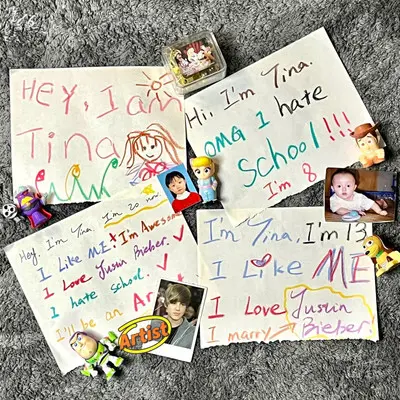 HEY, I am
Tina
Hi, I'm Tina.
OMG I hate
School!!!
I'm 8
Hey, I'm Tina, I'm 20 now
I Like ME & I'm Awesome
I Love Justin Bieber. ✓
I hate School. ✓
I'll be an Ar
Artist
I'm Tina, I'm 13,
I Like ME
I Love Justin
I marry → Bieber.